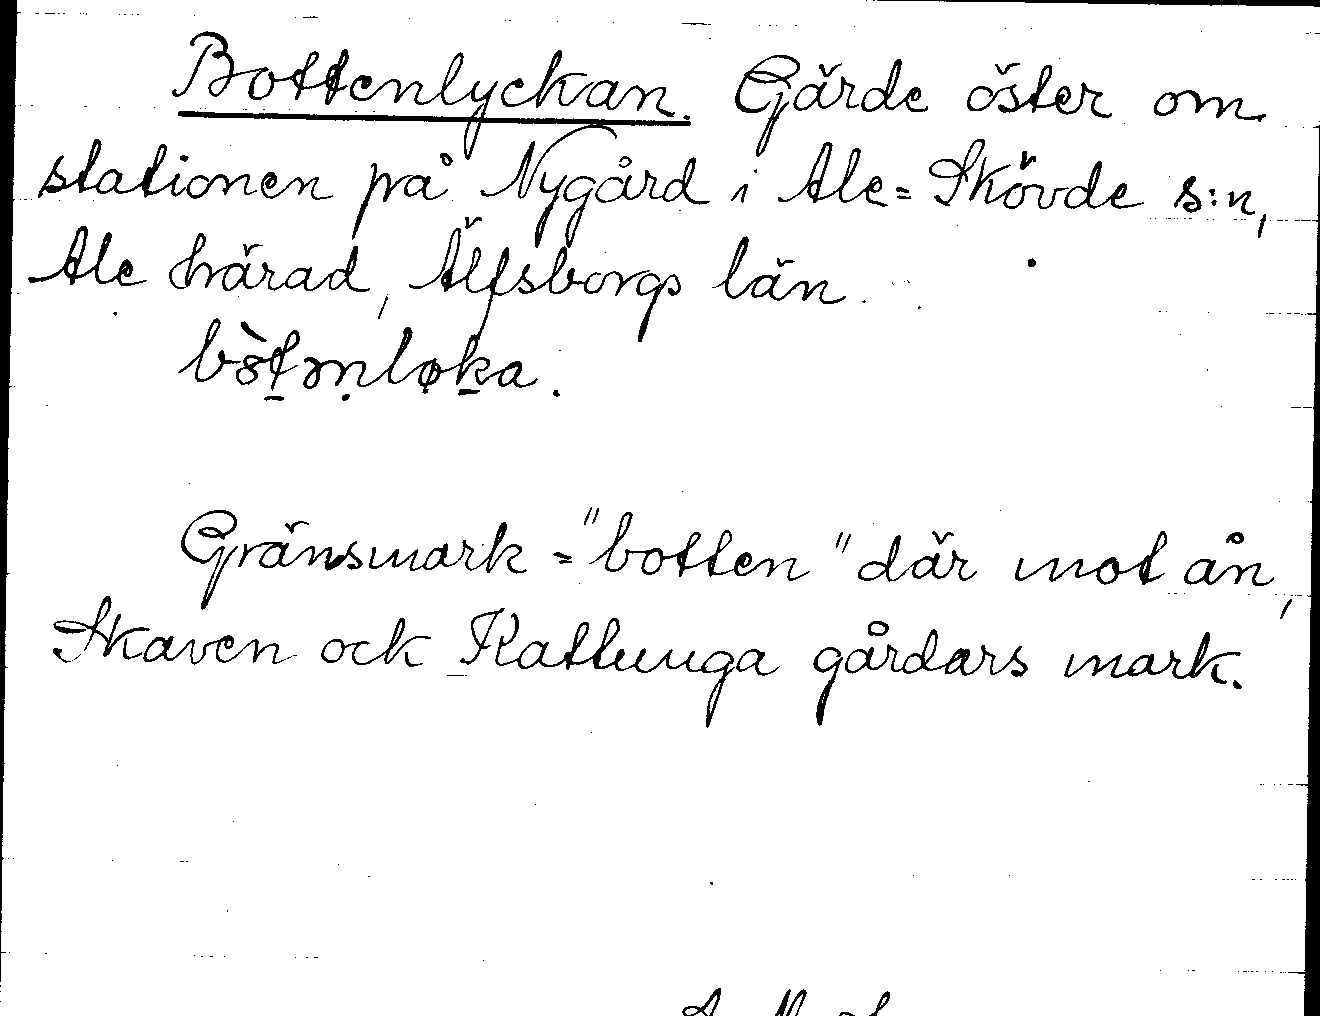 Bottenlyckan. Gärde öster om
stationen på Nygård i Ale=Skövde s:n,
Ale härad, Älfsborgs län.
Gränsmark = "botten" där mot ån,
Skaven ock Kattunga gårdars mark.